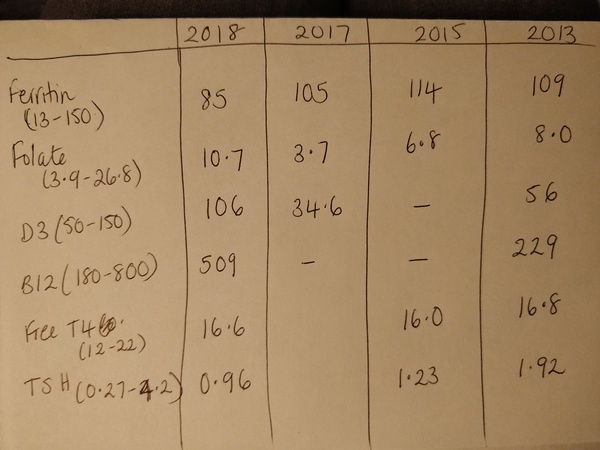 2018 2017 2015 2013
Ferritin 85 105 114 109
(13-150)
Folate 10.7 3.7 6.8 8.0
(3.9-26.8)
D3 (50-150) 106 34.6 - 56
B12 (180-800) 509 - - 229
Free T4 16.6 16.0 16.8
(12-22)
TSH (0.27-4.2) 0.96 1.23 1.92